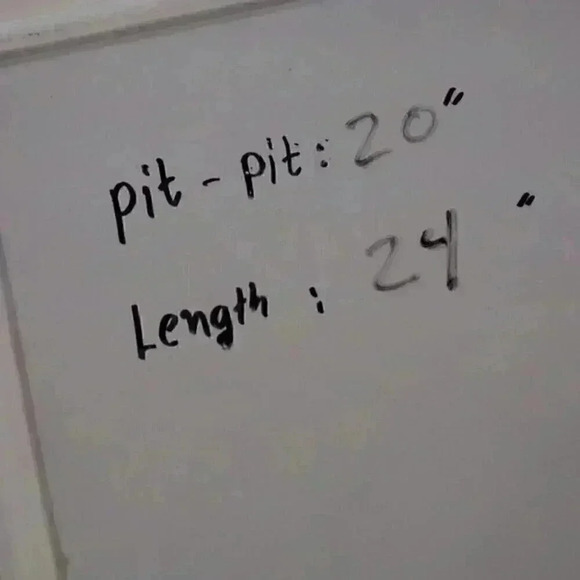 pit - pit : 20"
Length : 24 "